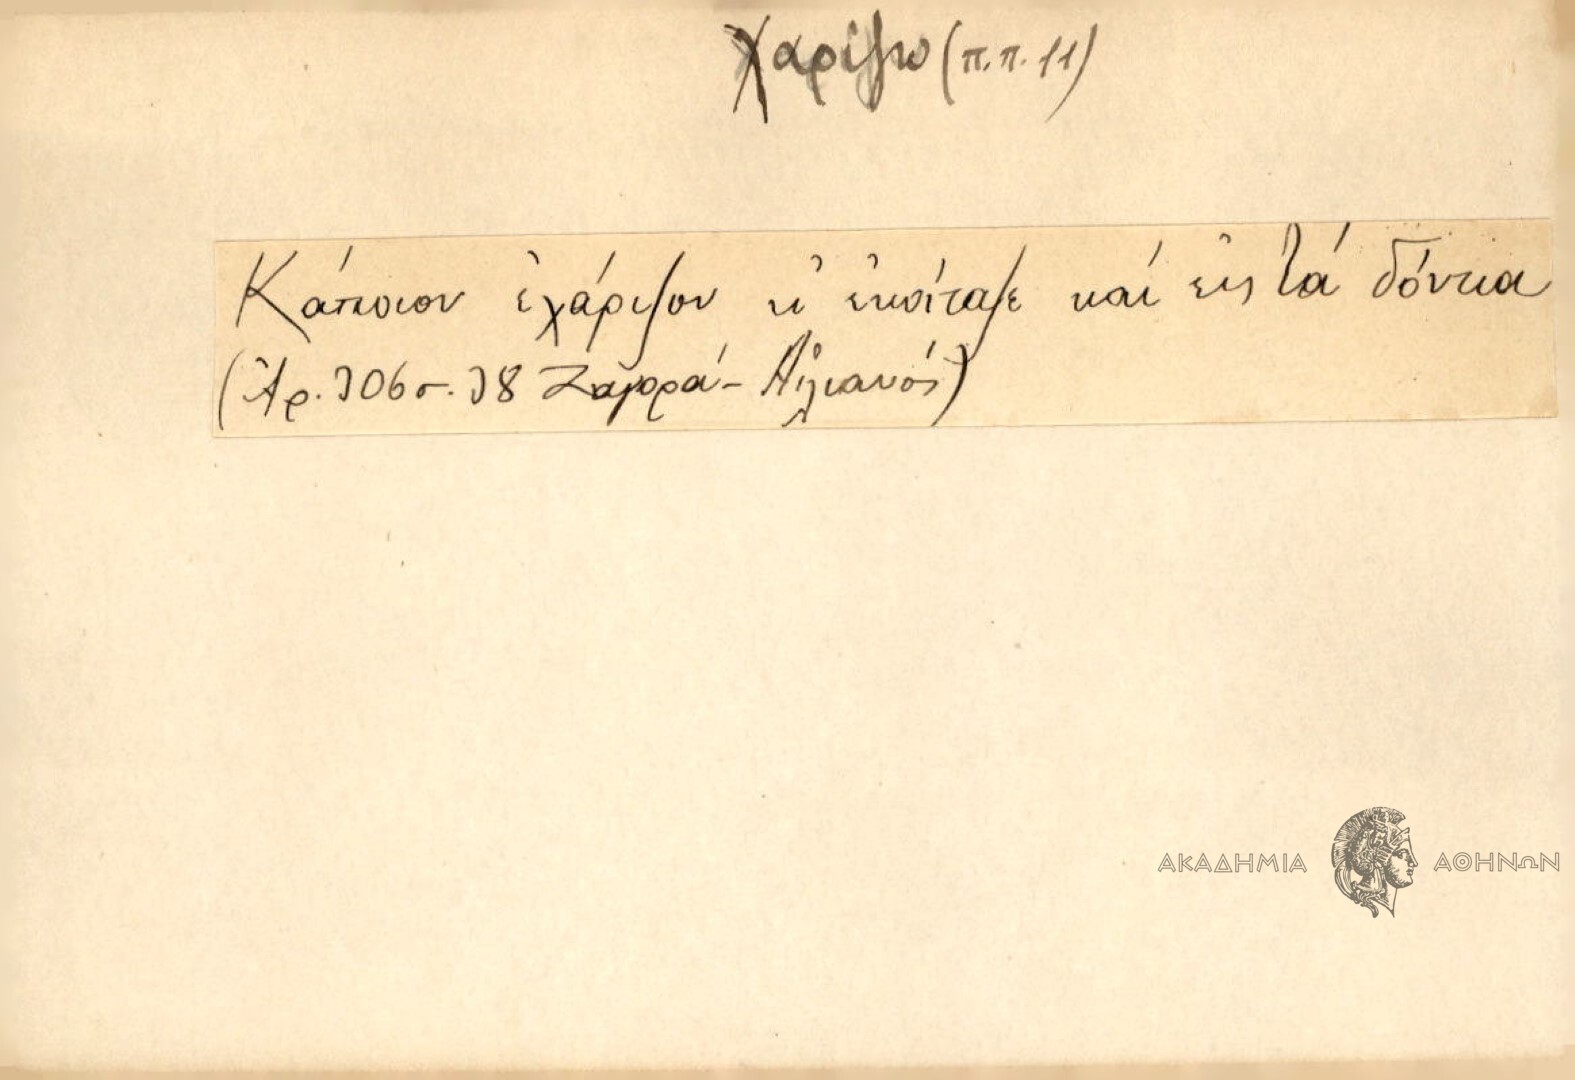 χαρίζω (π.π. 11)
Κάποιον ἐχάριζον κι̉ ἐκοίταζε καί εἰς τά δόντια
(Ἀρ. 306 σ. 38 Ζαγορά - Αἰλιανός)
ΑΚΑΔΗΜΙΑ ΑΘΗΝΩΝ